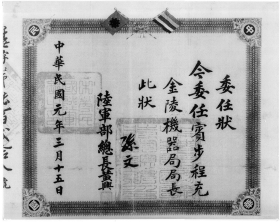 委任狀
今委任賓步程充
金陵機器局局長
此狀
孫文
陸軍部總長黃興
中華民國元年三月十五日